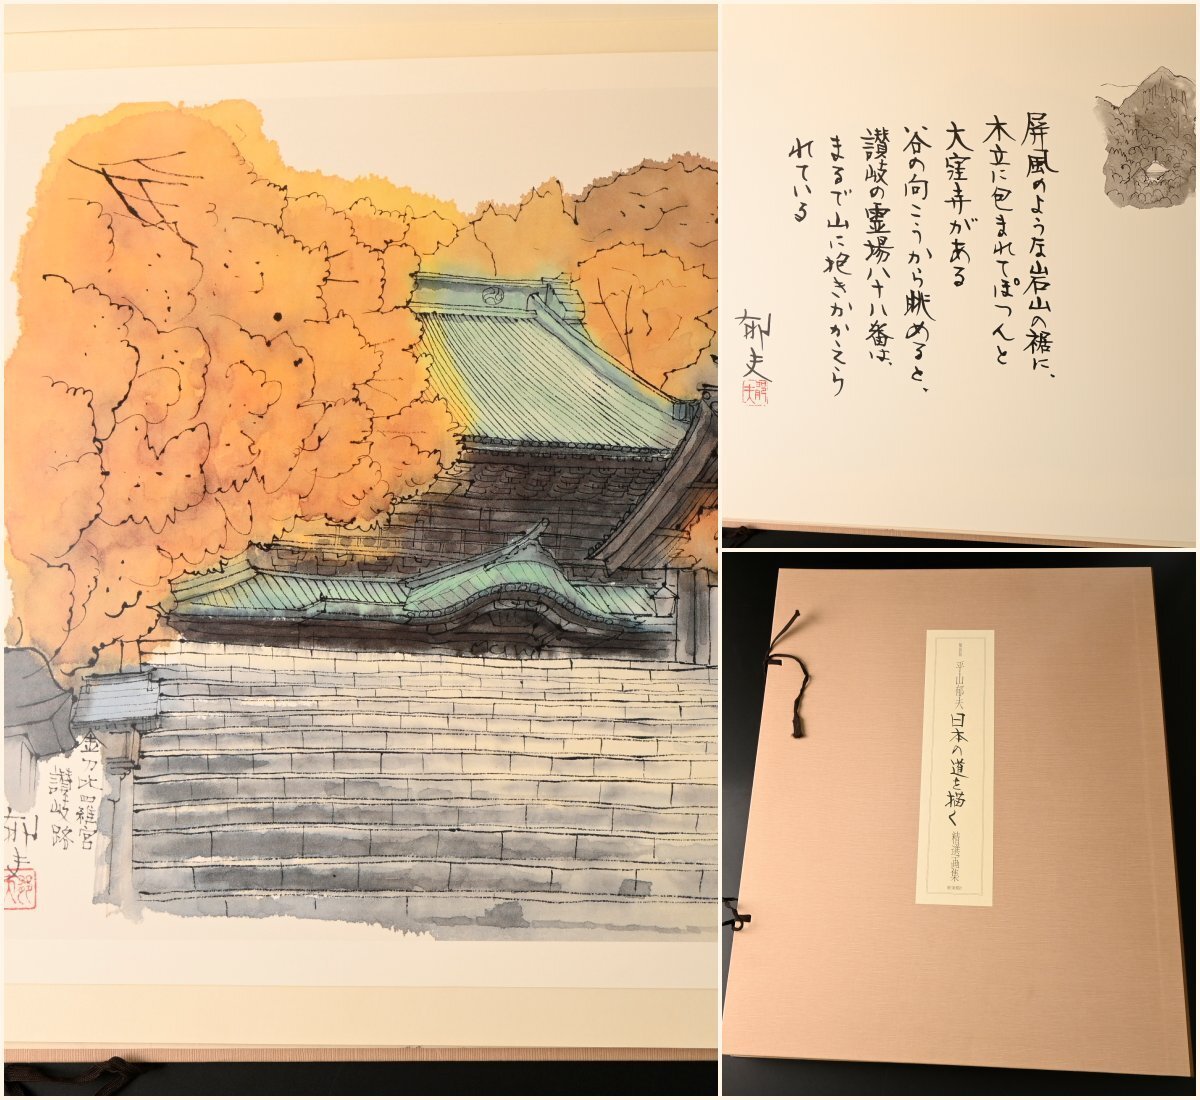 金刀比羅宮
讃岐路
郁夫
屏風のような岩山の裾に、
木立に包まれてぽつんと
大窪寺がある
谷の向こうから眺めると、
讃岐の霊場八十八番は、
まるで山に抱きかかえら
れている
郁夫
平山郁夫
日本の道を描く
精選画集